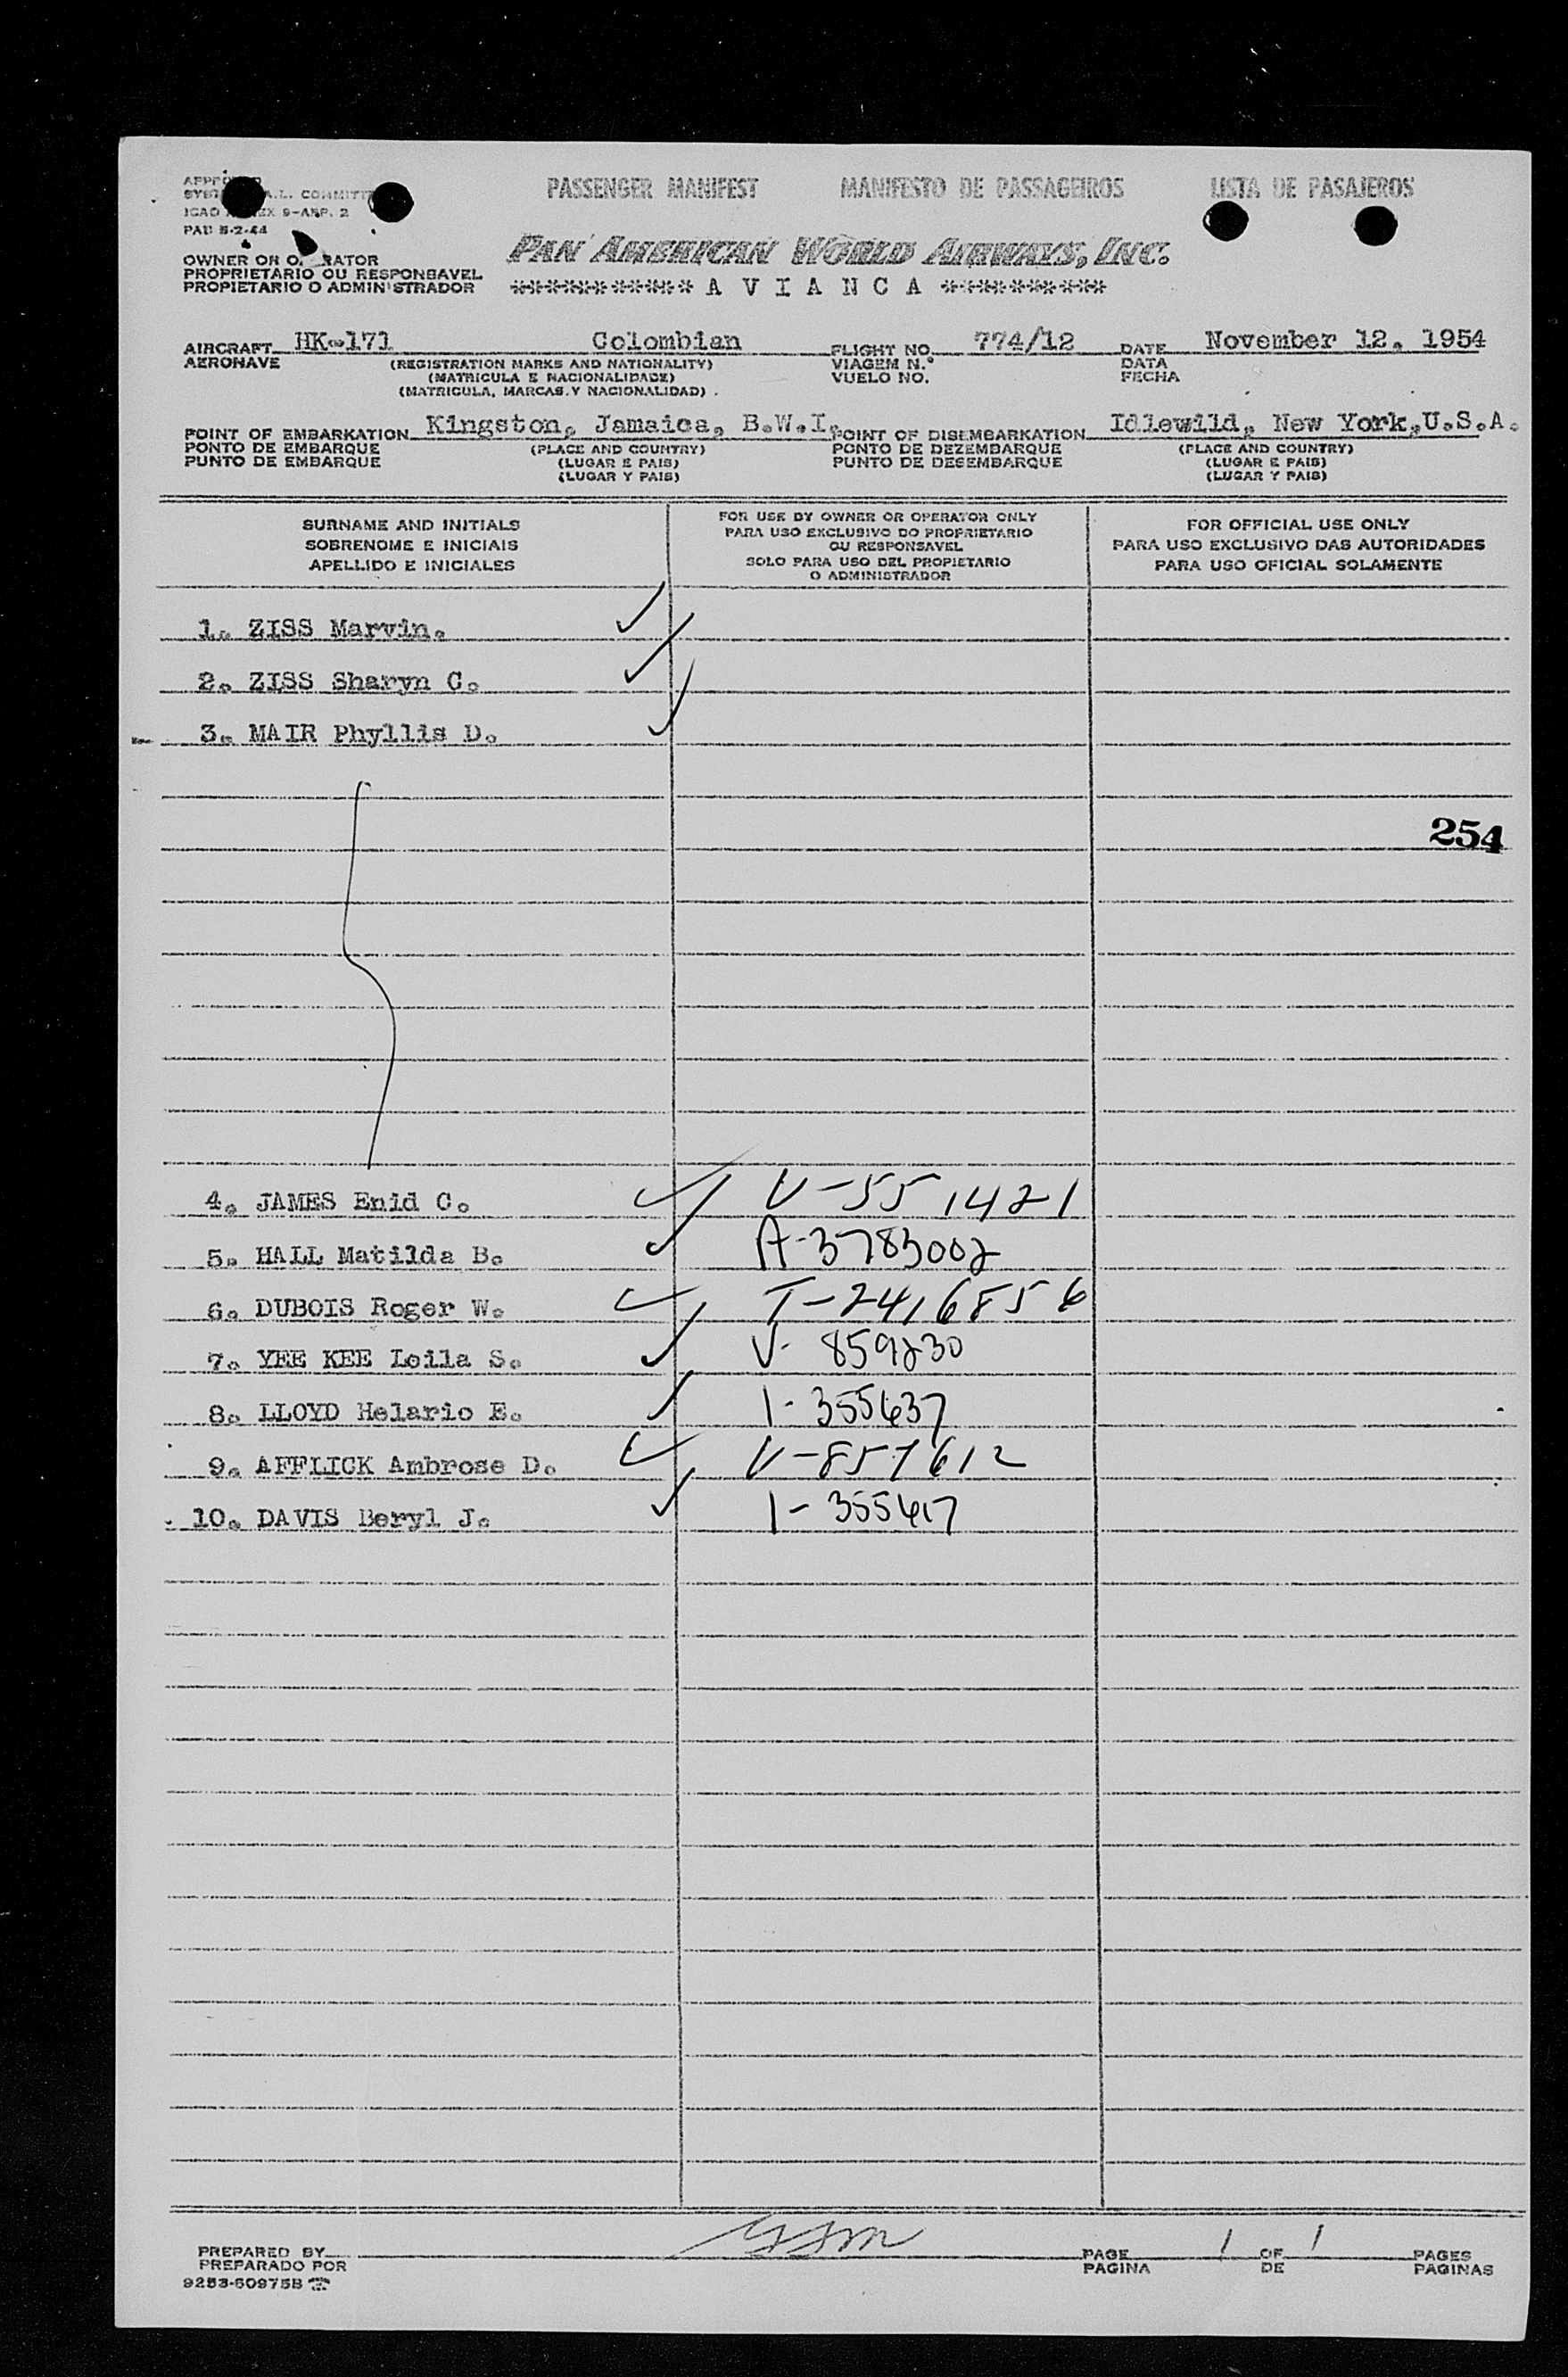 PASSENGER MANIFEST MANIFESTO DE PASSAGEIROS LISTA DE PASAJEROS
A.L. COMMITT
ICAO EX 9-APP. 2
PAU 5-2-44
PAN AMERICAN WORLD AIRWAYS, INC.
OWNER OR O RATOR
PROPRIETARIO OU RESPONSAVEL
PROPIETARIO O ADMINISTRADOR
*********** A V I A N C A **********
AIRCRAFT HK-171 Colombian FLIGHT NO. 774/12 DATE November 12, 1954
AERONAVE (REGISTRATION MARKS AND NATIONALITY) VIAGEM N.° DATA
(MATRICULA E NACIONALIDADE) VUELO NO. FECHA
(MATRICULA, MARCAS Y NACIONALIDAD)
POINT OF EMBARKATION Kingston, Jamaica, B.W.I. POINT OF DISEMBARKATION Idlewild, New York,U.S.A.
PONTO DE EMBARQUE (PLACE AND COUNTRY) PONTO DE DEZEMBARQUE (PLACE AND COUNTRY)
PUNTO DE EMBARQUE (LUGAR E PAIS) PUNTO DE DESEMBARQUE (LUGAR E PAIS)
(LUGAR Y PAIS) (LUGAR Y PAIS)
SURNAME AND INITIALS
SOBRENOME E INICIAIS
APELLIDO E INICIALES
FOR USE BY OWNER OR OPERATOR ONLY
PARA USO EXCLUSIVO DO PROPRIETARIO
OU RESPONSAVEL
SOLO PARA USO DEL PROPIETARIO
O ADMINISTRADOR
FOR OFFICIAL USE ONLY
PARA USO EXCLUSIVO DAS AUTORIDADES
PARA USO OFICIAL SOLAMENTE
1. ZISS Marvin.
2. ZISS Sharyn C.
3. MAIR Phyllis D.
254
4. JAMES Enid C. V-551421
5. HALL Matilda B. A-3783002
6. DUBOIS Roger W. T-2416856
7. YEE KEE Leila S. V-859230
8. LLOYD Helario E. 1-355637
9. AFFLICK Ambrose D. V-857612
10. DAVIS Beryl J. 1-355617
PREPARED BY PAGE 1 OF 1 PAGES
PREPARADO POR PAGINA DE PAGINAS
9253-60975B